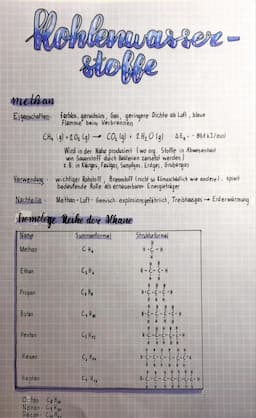 Kohlenwasser-
stoffe
Methan
Eigenschaften: farblos, geruchlos, Gas, geringere Dichte als Luft, blaue
Flamme beim Verbrennen
CH₄ (g) + 2 O₂ (g) → CO₂ (g) + 2 H₂O (g)
Wird in der Natur produziert (wo org. Stoffe in Abwesenheit
von Sauerstoff durch Bakterien zersetzt werden)
Verwendung: wichtiger Rohstoff, Brennstoff (nicht so klimaschädlich wie andere), spielt
bedeutende Rolle als erneuerbarer Energieträger
Nachteile: Methan-Luft-Gemisch explosionsgefährlich, Treibhausgas → Erderwärmung
homologe Reihe der Alkane
Name Summenformel Strukturformel
Methan CH₄
Ethan C₂H₆
Propan C₃H₈
Butan C₄H₁₀
Pentan C₅H₁₂
Hexan C₆H₁₄
Heptan C₇H₁₆
Octan C₈H₁₈
Nonan C₉H₂₀
Decan